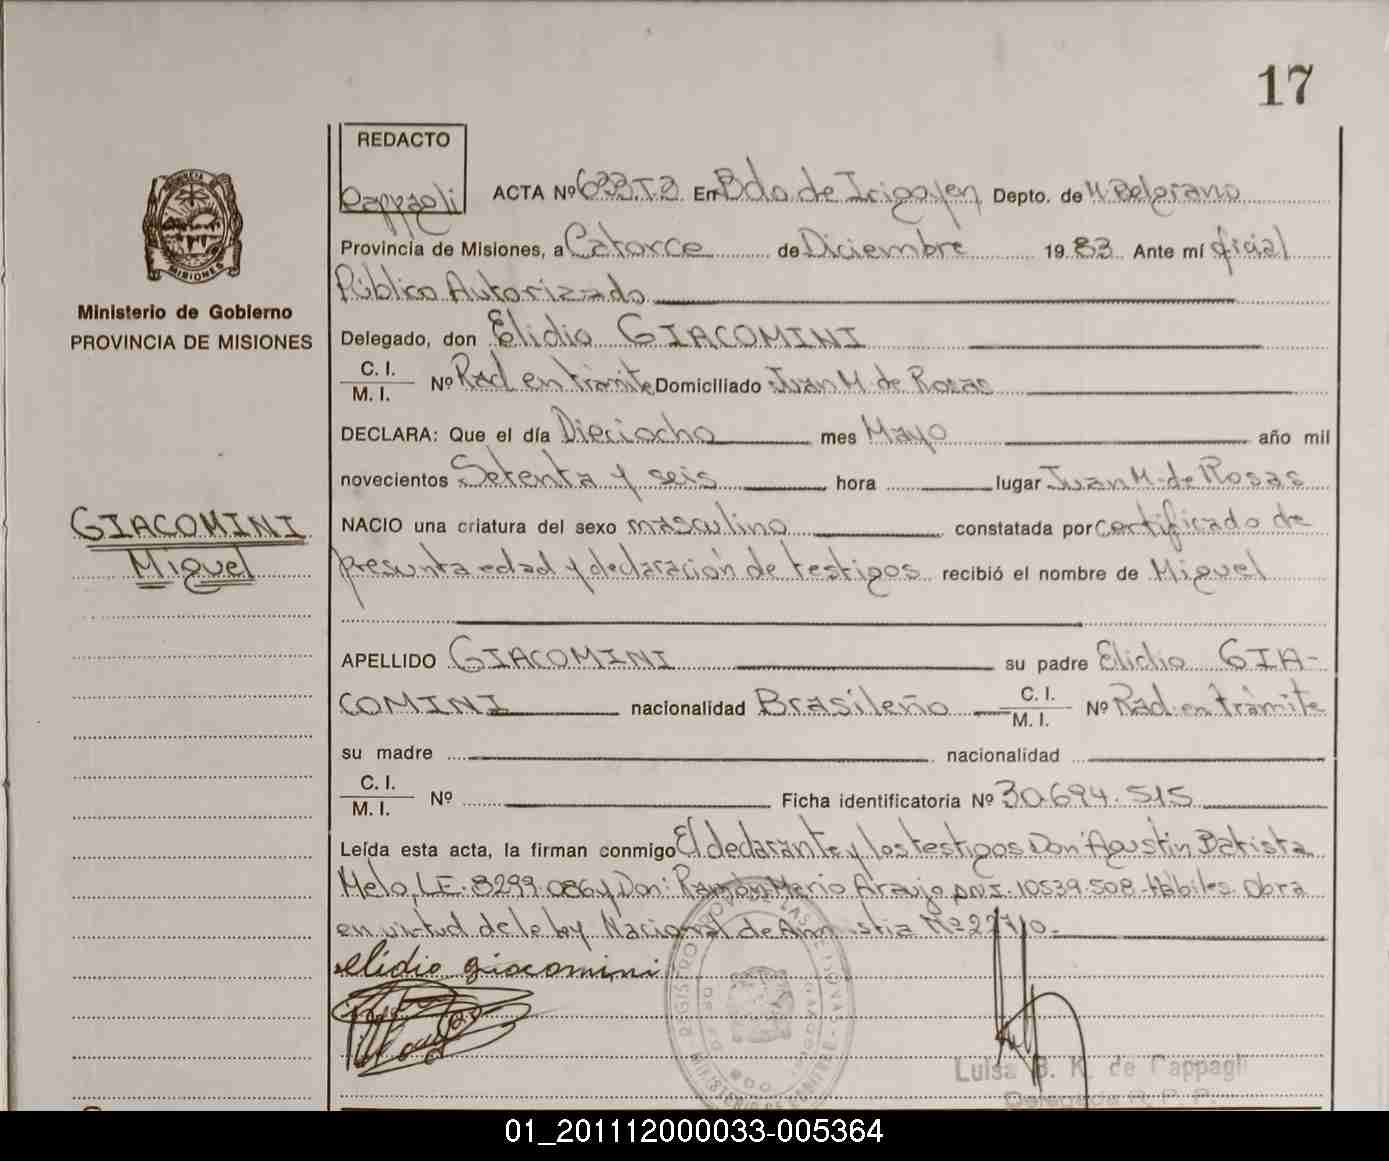 17
REDACTO
Cappagli
ACTA Nº 633.T.2 En Bdo de Irigoyen Depto. de M. Belgrano
Provincia de Misiones, a Catorce de Diciembre 1983 Ante mí oficial
Público Autorizado
PROVINCIA
MISIONES
Ministerio de Gobierno
PROVINCIA DE MISIONES
Delegado, don Elidio GIACOMINI
C. I.
M. I. Nº Rad. en trámite Domiciliado Juan M. de Rosas
DECLARA: Que el día Dieciocho mes Mayo año mil
novecientos Setenta y seis hora lugar Juan M. de Rosas
GIACOMINI
Miguel
NACIO una criatura del sexo masculino constatada por certificado de
presunta edad y declaración de testigos recibió el nombre de Miguel
APELLIDO GIACOMINI su padre Elidio GIA-
COMINI nacionalidad Brasileño C. I. M. I. Nº Rad. en trámite
su madre nacionalidad
C. I.
M. I. Nº Ficha identificatoria Nº 30.694.515
Leída esta acta, la firman conmigo El declarante y los testigos Don Agustín Batista
Melo, L.E. 8299.086 y Don: Ramón Merio Araujo D.N.I. 10539.508 - Hábiles. Obra
en virtud de le ley Nacional de Amnistia Nº
elidio giacomini
Luisa B. K. de Cappagli
Delegada R. P. P.
01_201112000033-005364